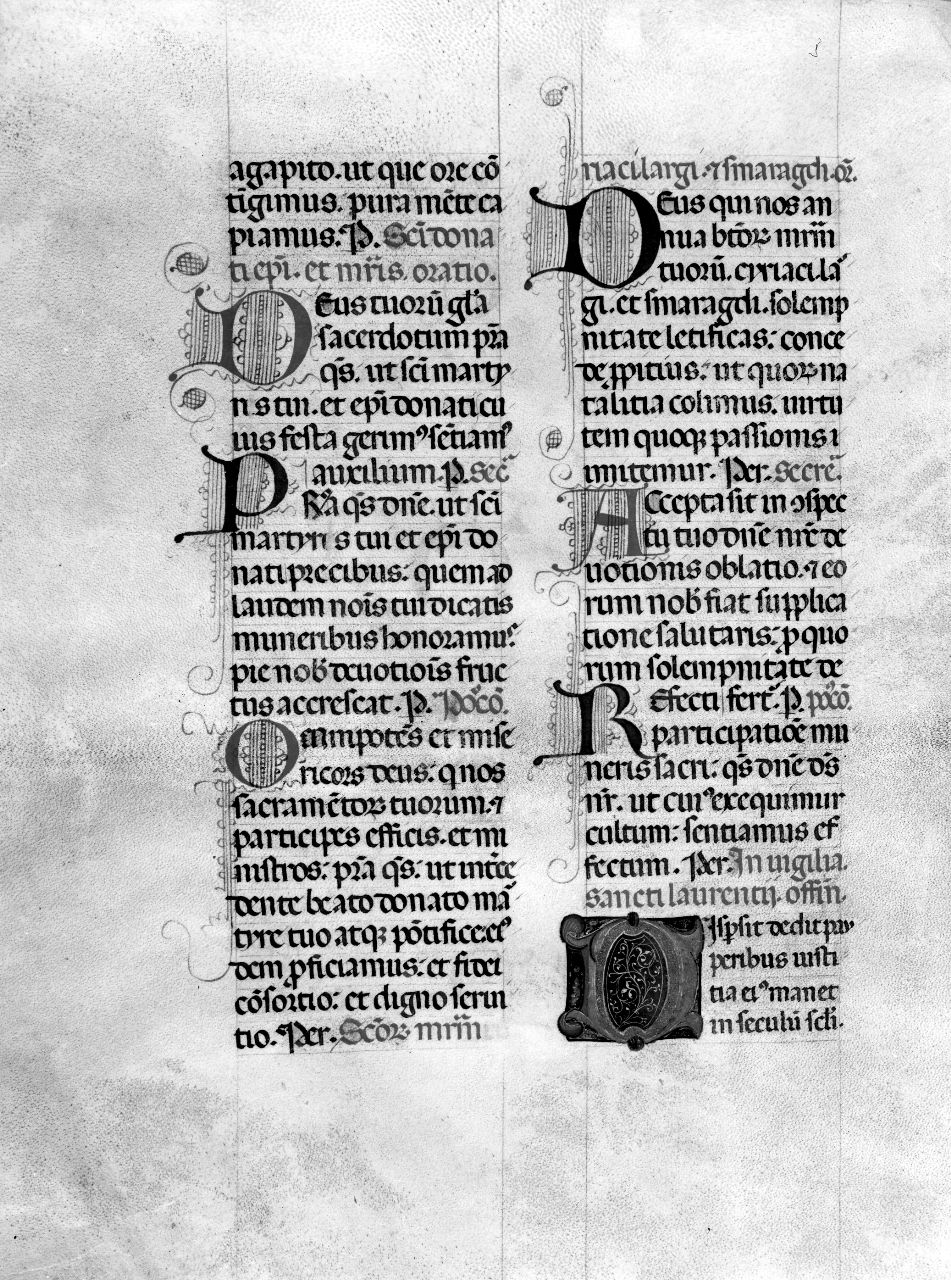 agapito. ut que ore cō
tīgimus. pura mēte ca
piamus. P. Scī dona
ti epī. et mrīs. oratio.
DEus tuorū gl̄a
sacerdotum prā
qs̄. ut scī marty
ris tui. et epī donati cu
ius festa gerimꝰ sētiamꝰ
auxilium. P. Sec̄
PRā qs̄ dnē. ut scī
martyris tui et epī do
nati precibus: quem ad
laudem noīs tui dicatis
muneribus honoramus:
pie nob̄ deuotiōis fruc
tus accrescat. P. Pꝰ cō.
Omnipotēs et mise
ricors deus: q nos
sacramētoꝝ tuorum. ⁊
participes efficis. et mi
nistros: prā qs̄: ut intēce
dente beato donato mā
tyre tuo atqꝫ pōtifice: eiꝰ
dem ꝓficiamus: et fidei
cōsortio: et digno serui
tio. Per. Scōꝝ mrm̄
riaci largi. ⁊ smaragdi. or̄.
DEus qui nos an
nua btōꝝ mrm̄
tuorū. cyriaci la
gi. et smaragdi. solemp
nitate letificas: conce
de ꝓpitius: ut quoꝝ na
talitia colimus. uirtu
tem quoqꝫ passionis i
mitemur. Per. secre.
Accepta sit in ꝯspec
tu tuo dnē nrē de
uotionis oblatio. ⁊ eo
rum nob̄ fiat supplica
tione salutaris: ꝓ quo
rum solempnitate de
REfecti fert̄. P. pꝰ cō.
participatiōe mu
neris sacri: qs̄ dnē ds̄
nr̄. ut cuiꝰ exequimur
cultum: sentiamus ef
fectum. Per. In uigilia
sancti laurentij. offīn.
Dispsit dedit pau
peribus iusti
tia eiꝰ manet
in seculū scli.